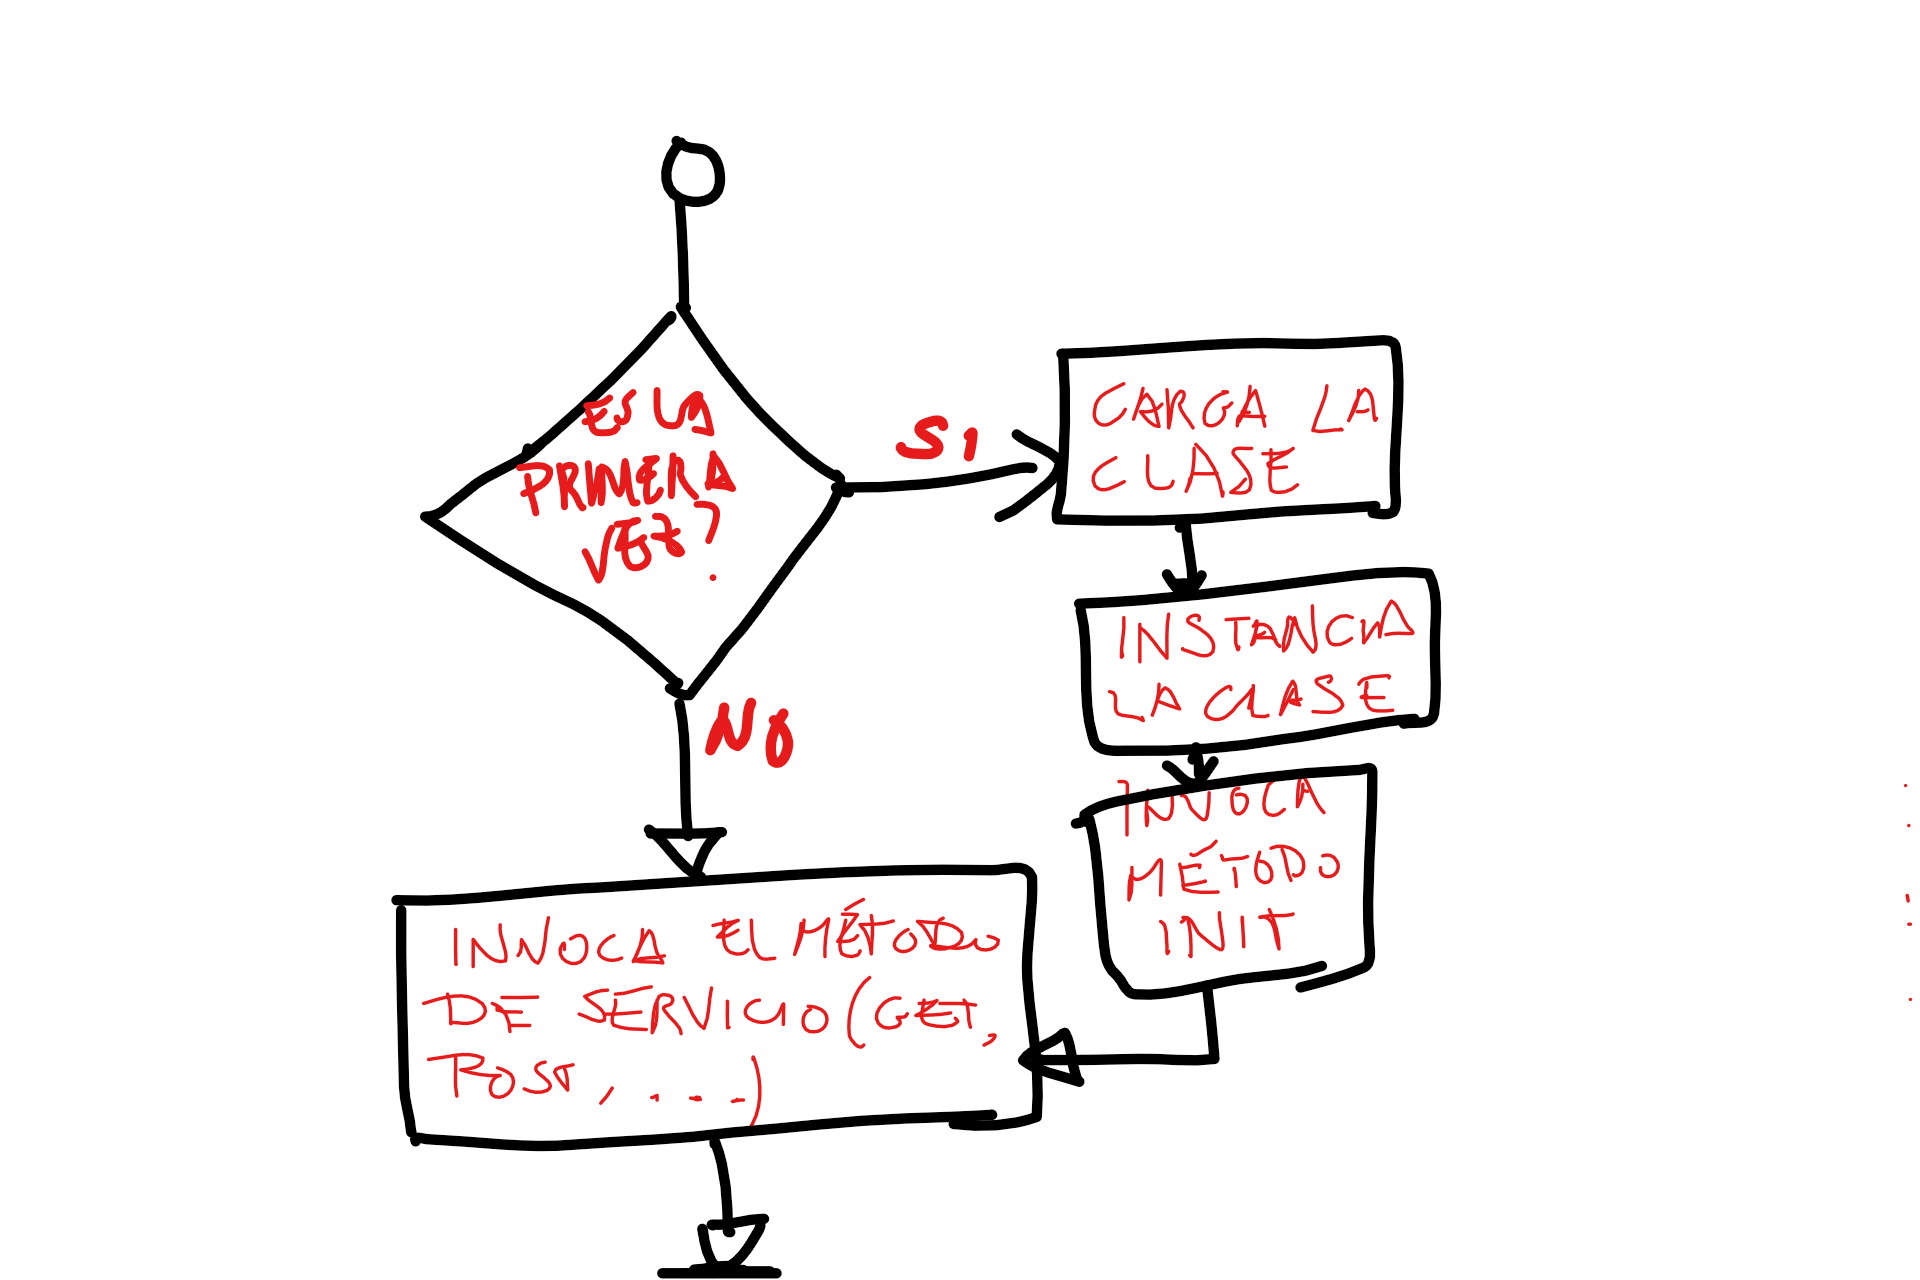 ES LA
PRIMERA
VEZ?
SI
CARGA LA
CLASE
INSTANCIA
LA CLASE
NO
INVOCA
MÉTODO
INIT
INVOCA EL MÉTODO
DE SERVICIO (GET,
POST, ....)